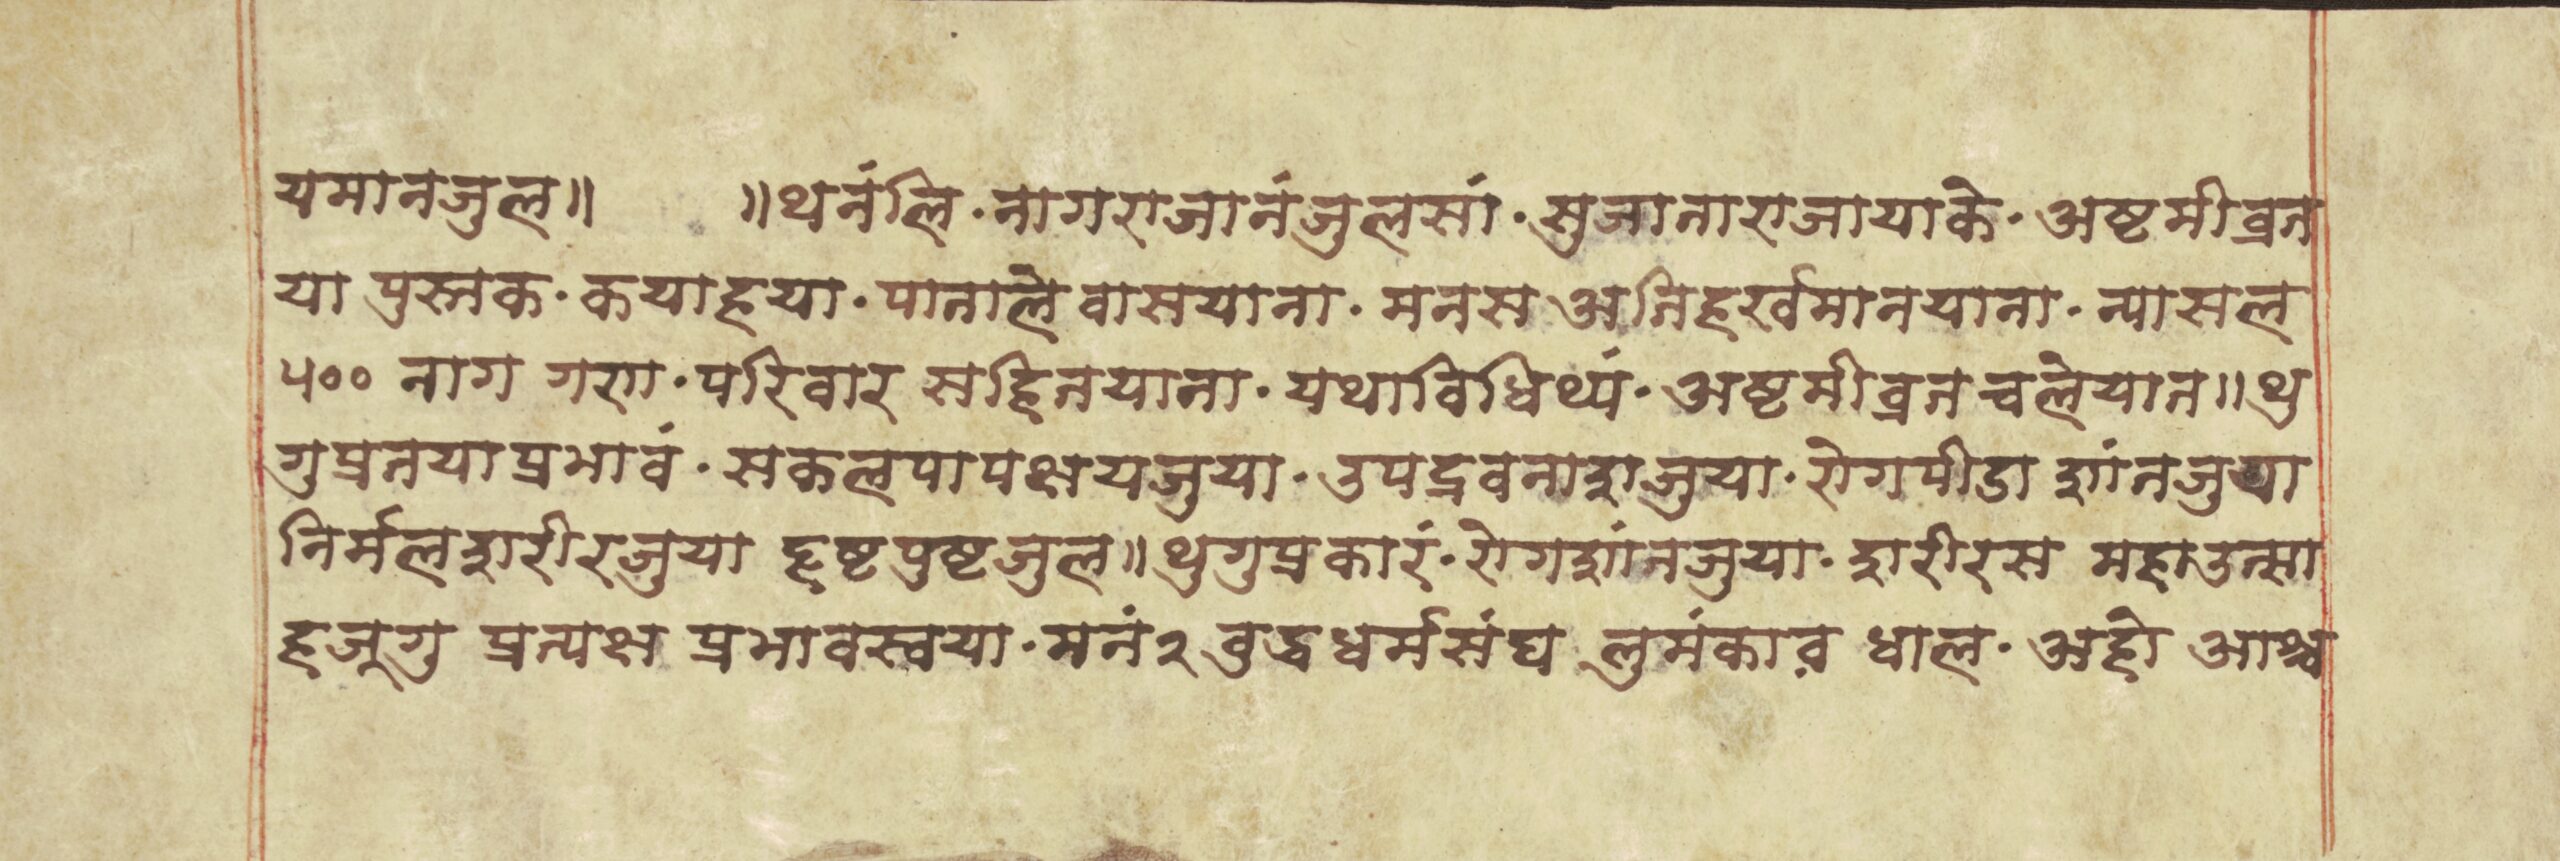 यमानजुल॥ ॥थनंलि·नागराजानंजुलसां·सुजातराजायाके·अष्टमीव्रत
या पुस्तक·कयाहया·पातालै वासयाना·मनस अतिहर्खमानयाना·न्यासल
५०० नाग गण·परिवार सहितयाना·यथाविधिथ्यं·अष्टमीव्रत चलैयात॥थु
गुव्रतयाप्रभावं·सकलपापक्षयजुया·उपद्रवनाशजुया·रोगपीडा शांतजुया
निर्मलशरीरजुया हृष्टपुष्टजुल॥थुगुप्रकारं·रोगशांतजुया·शरीरस महाउत्सा
हजूगु प्रत्यक्ष प्रभावस्वया·मनं२ वुद्धधर्मसंघ लुमंकाव धाल·अहो आश्च